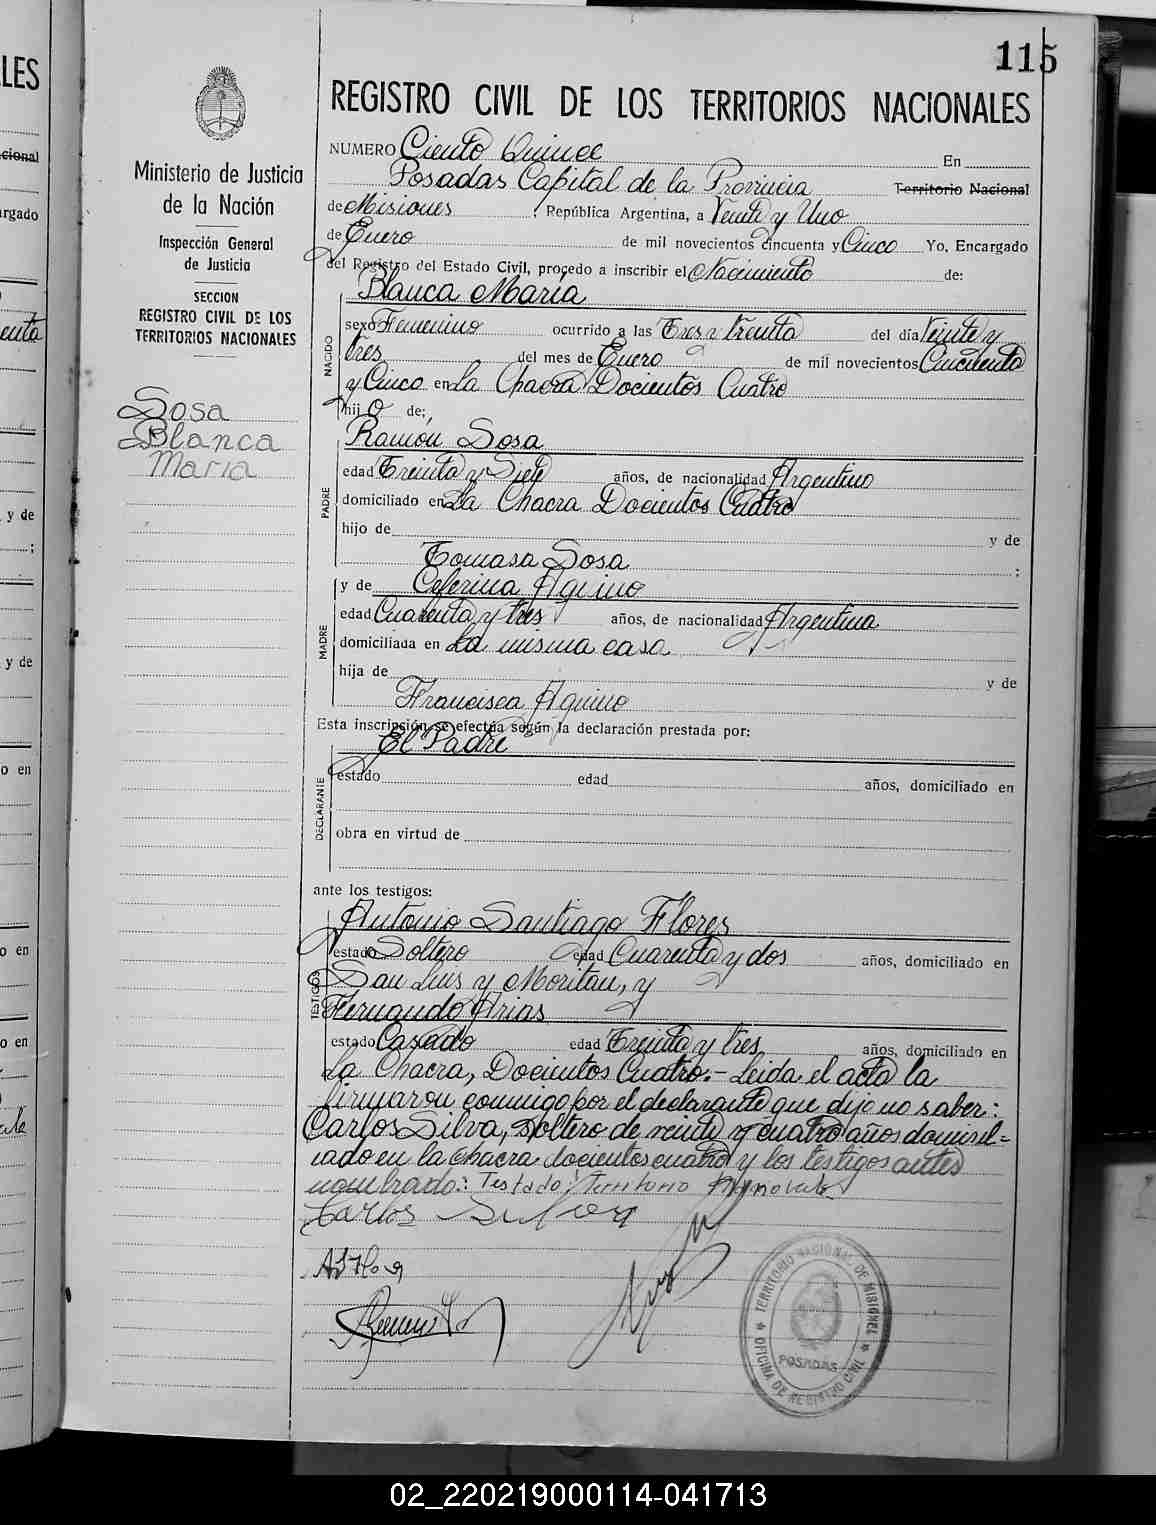 115
REGISTRO CIVIL DE LOS TERRITORIOS NACIONALES
Ministerio de Justicia
de la Nación
Inspección General
de Justicia
SECCION
REGISTRO CIVIL DE LOS
TERRITORIOS NACIONALES
Sosa
Blanca
Maria
NUMERO Ciento Quince En
Posadas Capital de la Provincia Territorio Nacional
de Misiones, República Argentina, a Veinte y Uno
de Enero de mil novecientos cincuenta y Cinco Yo, Encargado
del Registro del Estado Civil, procedo a inscribir el Nacimiento de:
Blanca María
NACIDO
sexo Femenino ocurrido a las Tres y treinta del día Veinte y
tres del mes de Enero de mil novecientos Cincuenta
y Cinco en La Chacra Docientos Cuatro
hij o de;
Ramón Sosa
PADRE
edad Treinta y Siete años, de nacionalidad Argentino
domiciliado en La Chacra Docientos Cuatro
hijo de y de
Tomasa Sosa ;
y de Ceferina Aquino
MADRE
edad Cuarenta y tres años, de nacionalidad Argentina
domiciliada en La misma casa
hija de y de
Francisca Aquino
Esta inscripción se efectúa según la declaración prestada por:
El Padre
DECLARANTE
estado edad años, domiciliado en
obra en virtud de
ante los testigos:
Antonio Santiago Flores
TESTIGOS
estado Soltero edad Cuarenta y dos años, domiciliado en
San Luis y Moritan, y
Fernando Arias
estado Casado edad Treinta y tres años, domiciliado en
La Chacra, Docientos Cuatro.- Leida el acta la
firmaron conmigo por el declarante que dijo no saber:
Carlos Silva, soltero de veinte y cuatro años domisil=
iado en la Chacra docientos cuatro y los testigos antes
nombrado: Testado: Territorio
Carlos Silva
TERRITORIO NACIONAL DE MISIONES
POSADAS
OFICINA DE REGISTRO CIVIL
LES
cional
argado
y de
;
y de
o en
o en
o en
02_220219000114-041713